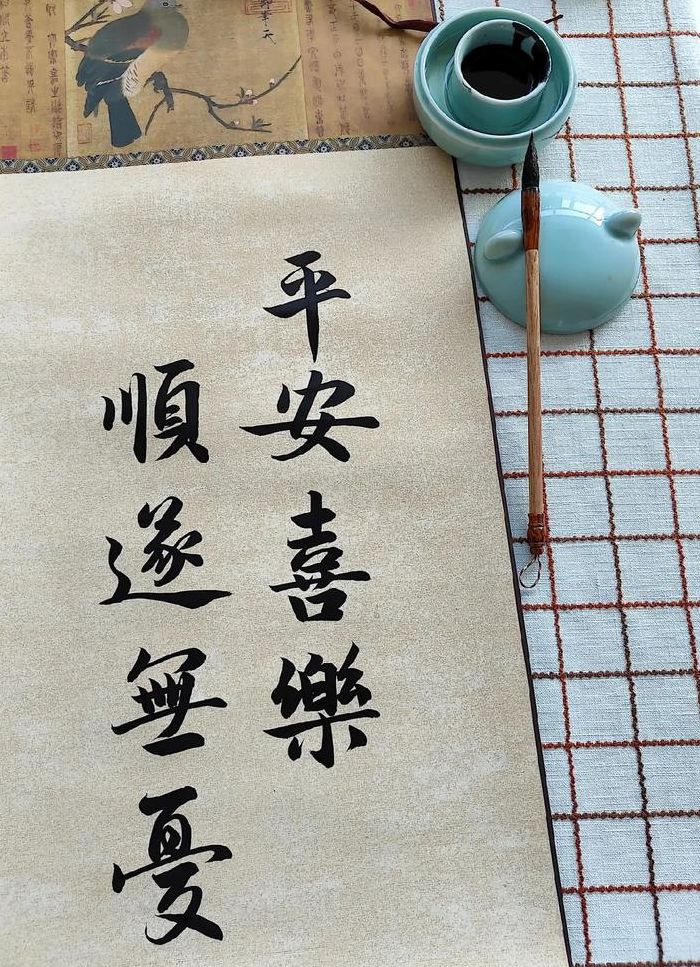 平安喜樂
順遂無憂